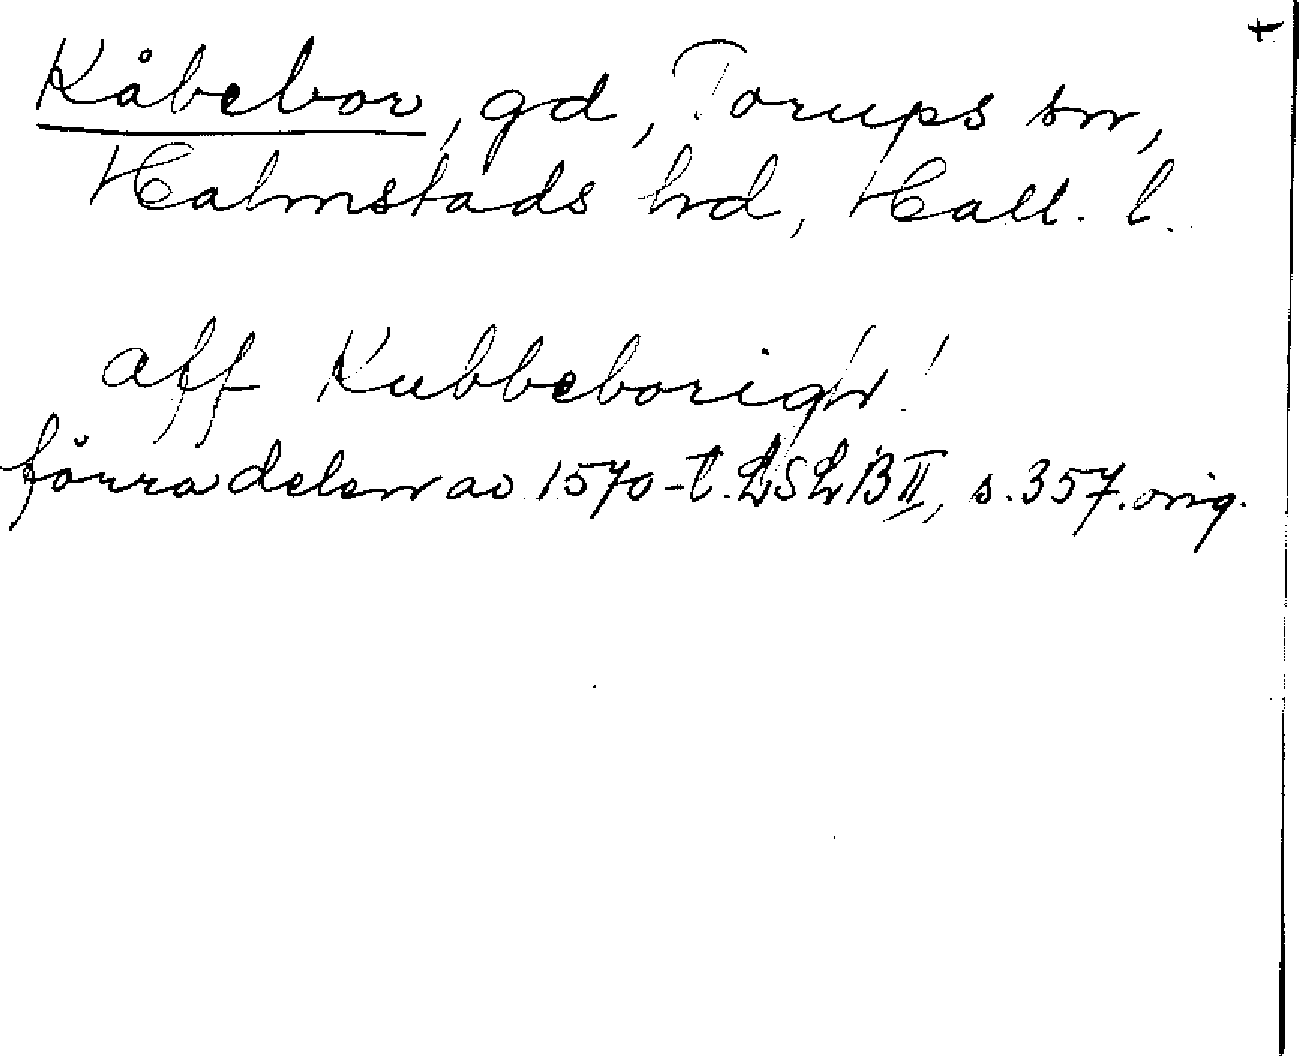 +
Kåbebor, gd, Torups sn,
Halmstads hd, Hall. l.
aff Kubbeborigh!
förra delen av 1570-t. LSLB II, s. 357. orig.